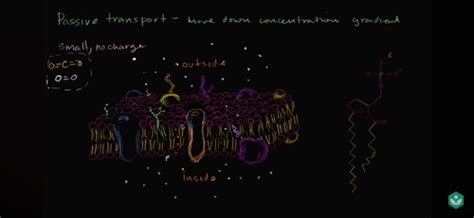 Passive transport - move down concentration gradient
small, no charge
O=C=O
O=O
outside
inside